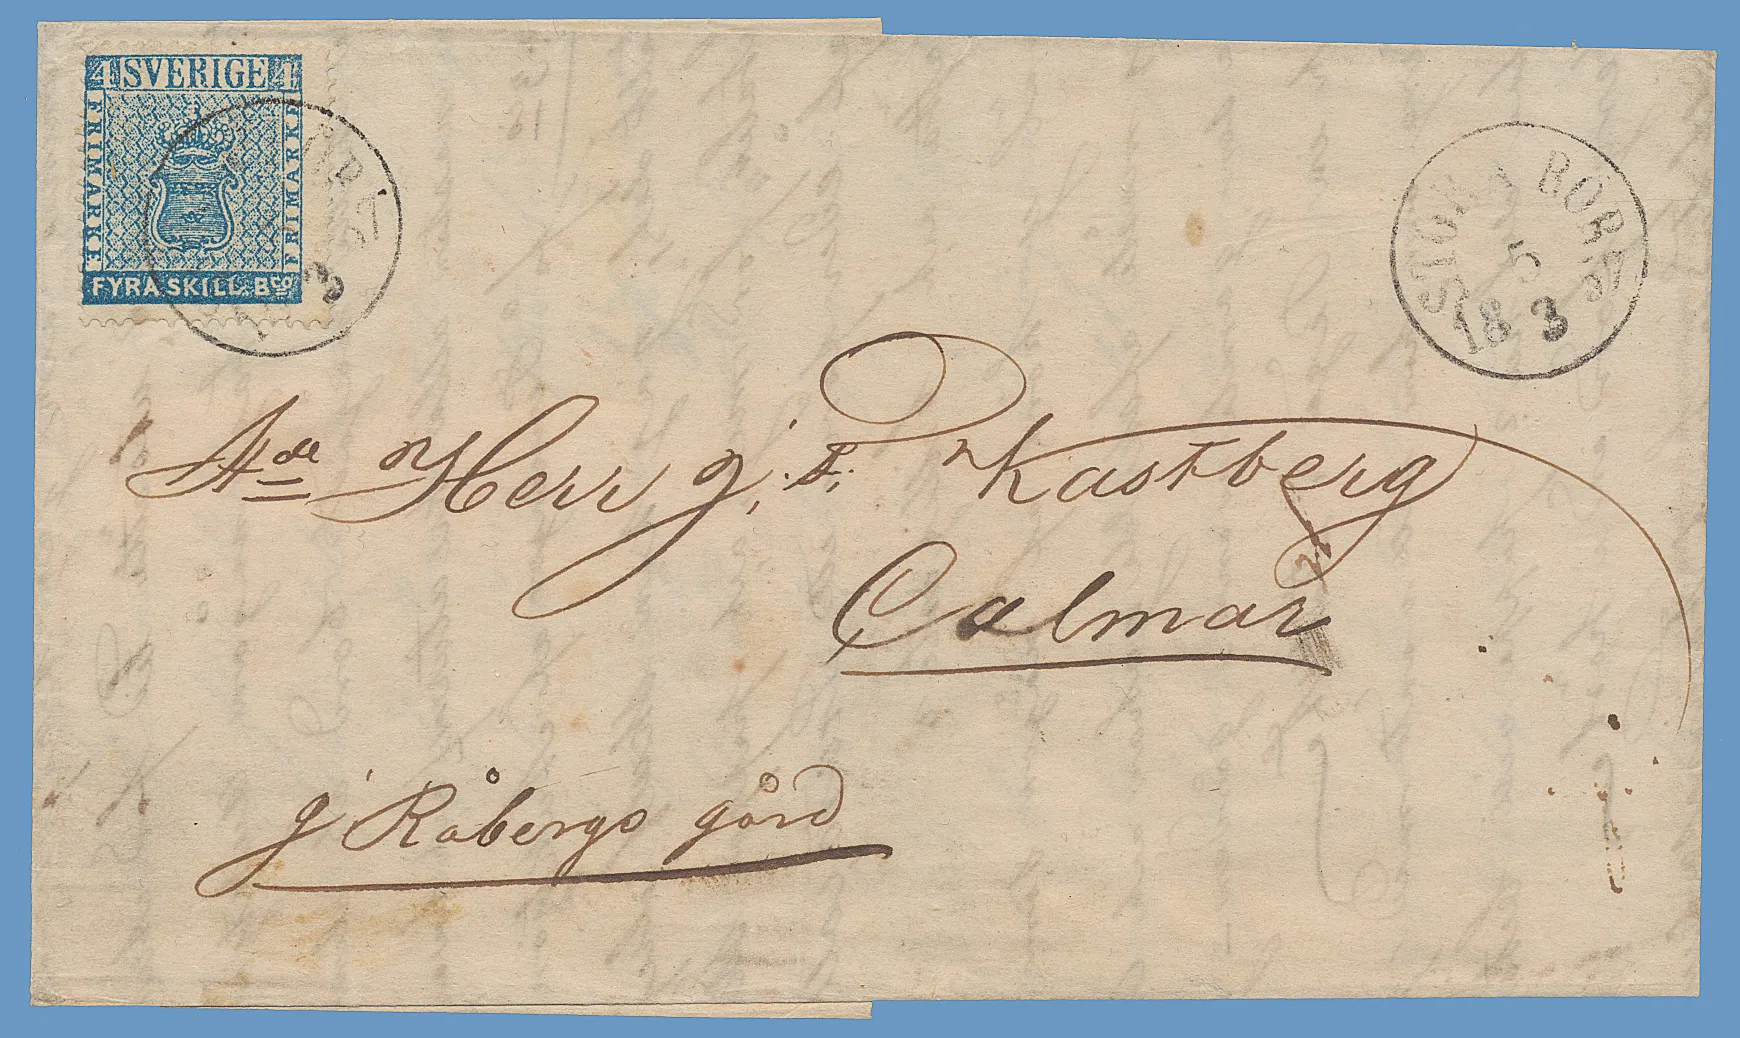 4 SVERIGE 4
FRIMÄRKE
FRIMÄRKE
FYRA SKILL. Bco
STORA RÖR
5
18 3
3
Herr J. F. Kastberg
Calmar
J Råbergs gård